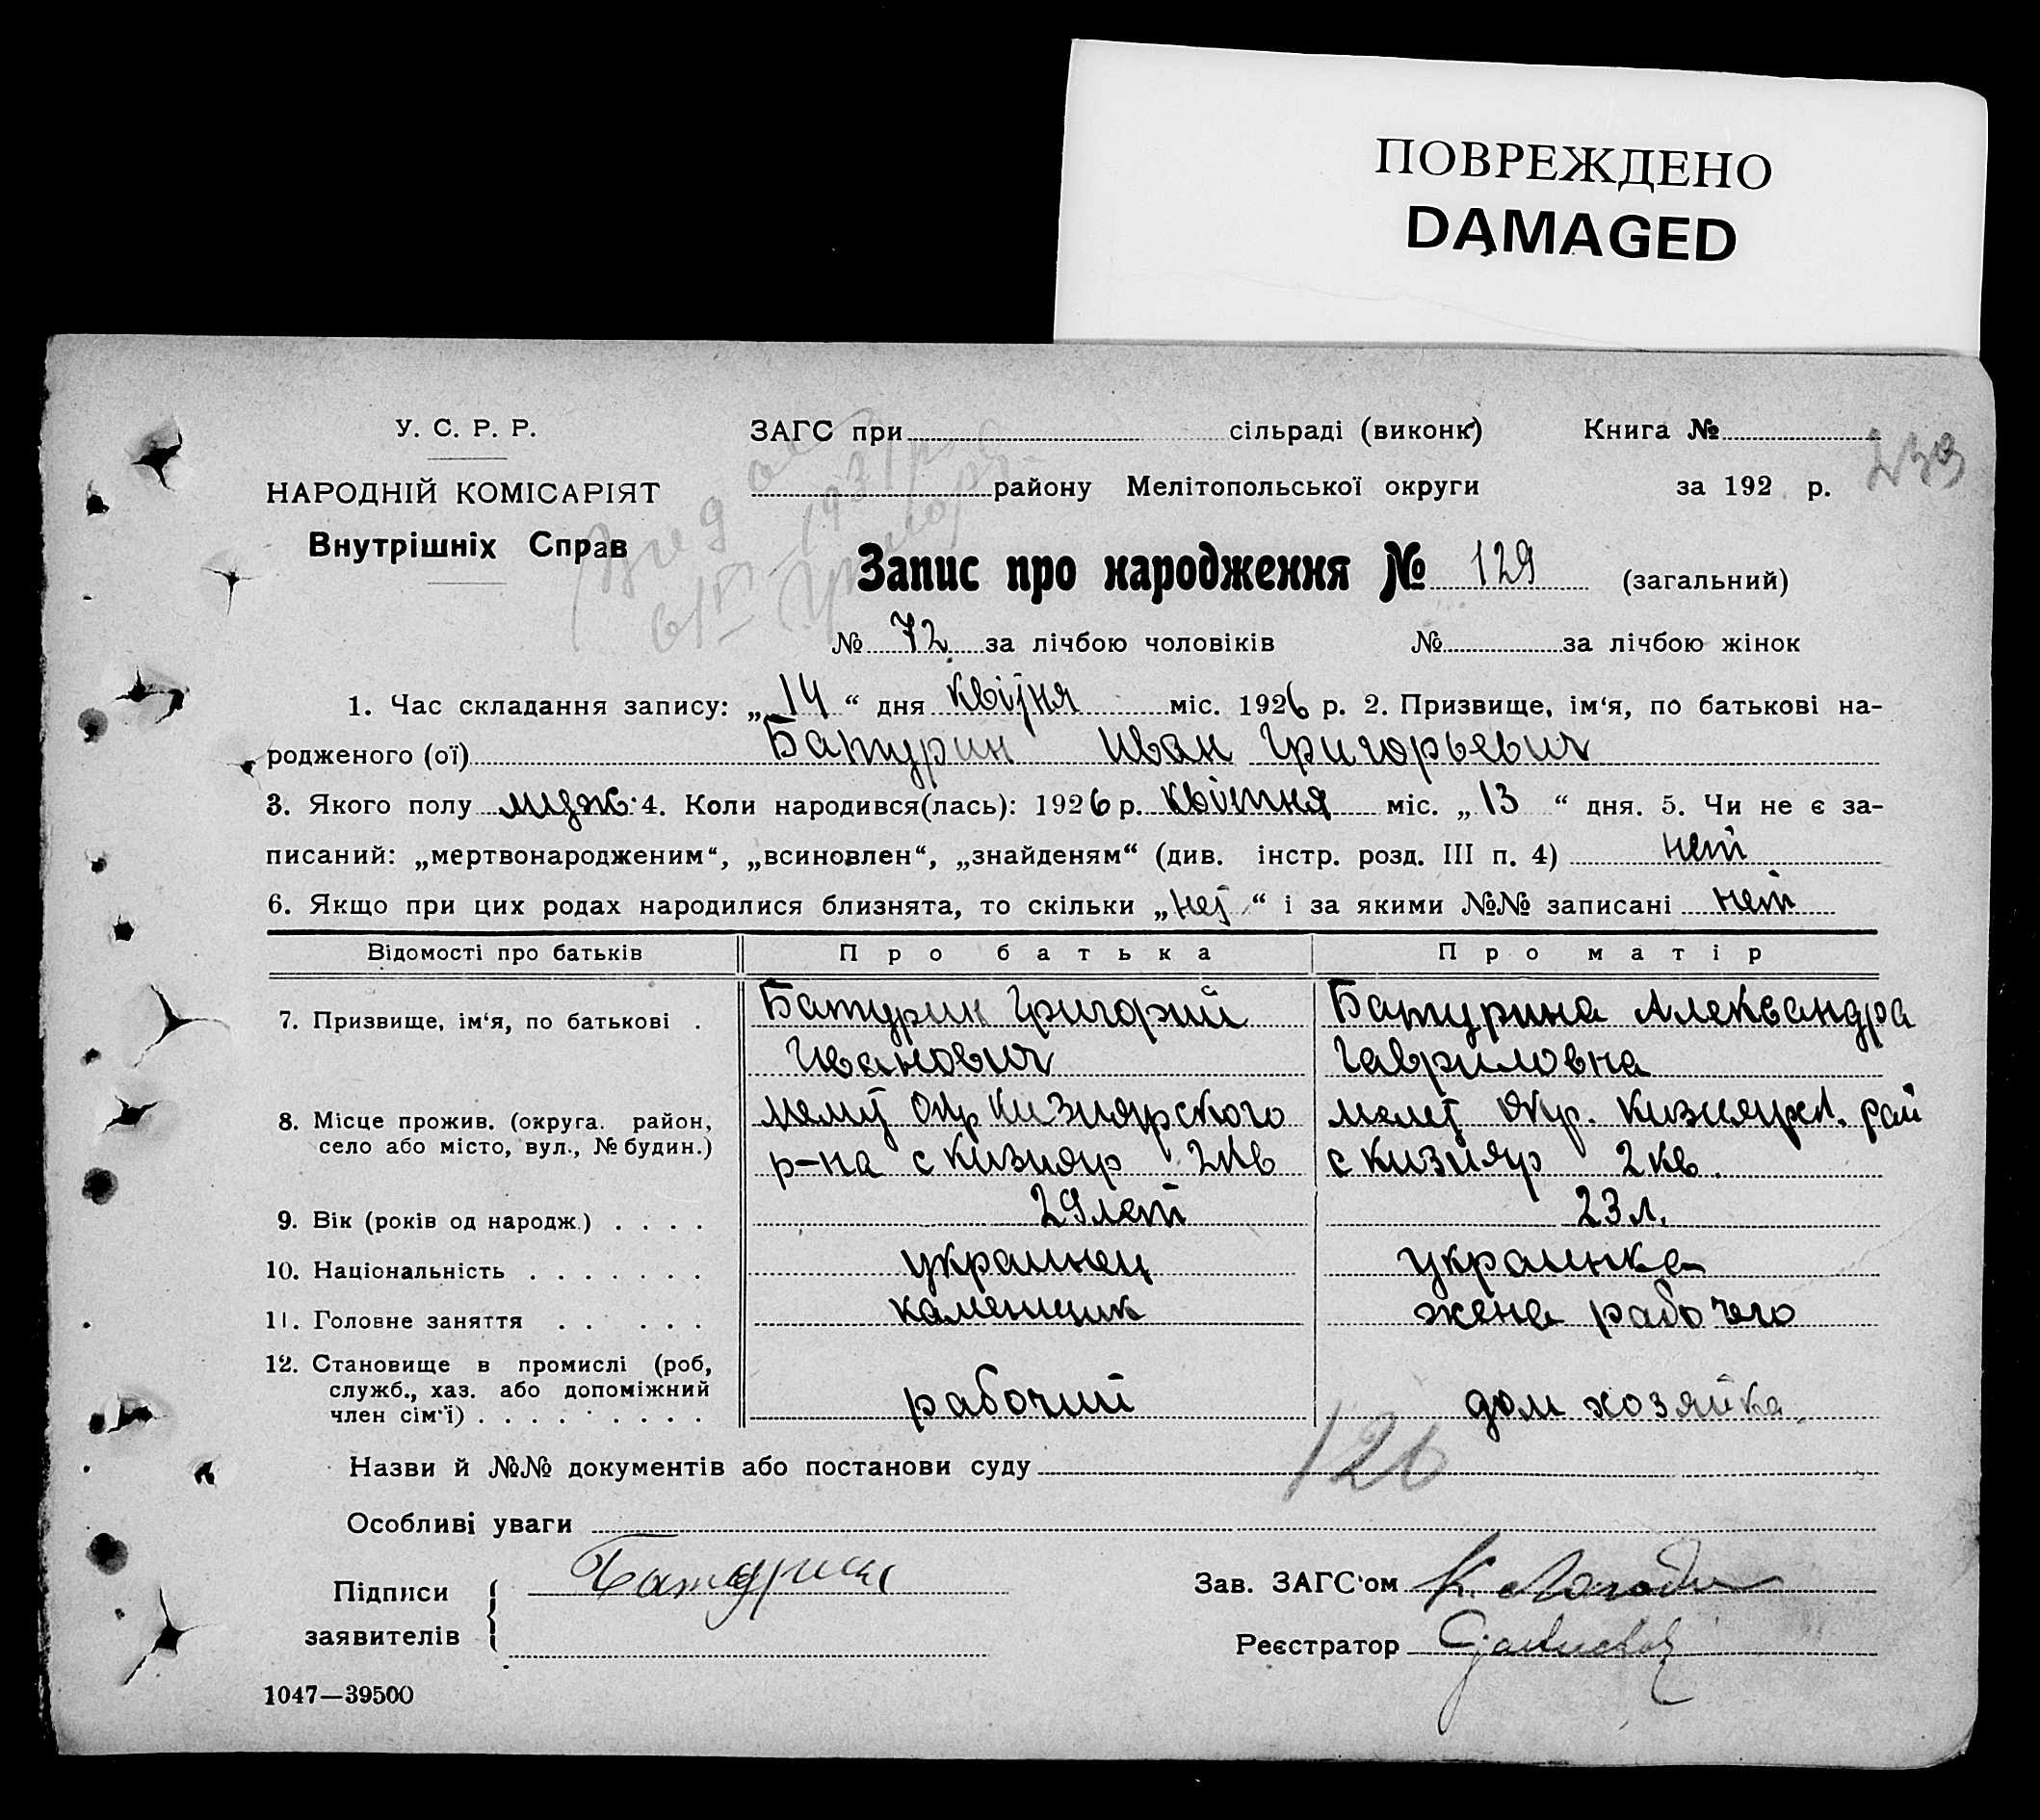 ПОВРЕЖДЕНО
DAMAGED
У. С. Р. Р.
ЗАГС при сільраді (виконк)
Книга №
239
НАРОДНІЙ КОМІСАРІЯТ
району Мелітопольської округи
за 192 р.
Внутрішніх Справ
Запис про народження № 129 (загальний)
№ 72 за лічбою чоловіків № за лічбою жінок
1. Час складання запису: „14“ дня квітня міс. 1926 р. 2. Призвище, ім‘я, по батькові на-
родженого (ої) Батурин Иван Григорьевич
3. Якого полу мудж. 4. Коли народився(лась): 1926 р. квітня міс. „13“ дня. 5. Чи не є за-
писаний: „мертвонародженим“, „всиновлен“, „знайденям“ (див. інстр. розд. III п. 4) нет
6. Якщо при цих родах народилися близнята, то скільки „нет“ і за якими №№ записані нет
Відомості про батьків Про батька Про матір
7. Призвище, ім‘я, по батькові .
Батурин Григорий
Иванович
Батурина Александра
Гавриловна
8. Місце прожив. (округа. район,
село або місто, вул., № будин.)
Мелит Окр Кизиярского
р-на с Кизияр 2кв
Мелит Окр. Кизиярск. рай
с Кизияр 2 кв.
9. Вік (років од народж.) . . . . 29 лет 23 л.
10. Національність . . . . . . . украинец украинка
11. Головне заняття . . . . . . каменщик жена рабочего
12. Становище в промислі (роб,
служб., хаз. або допоміжний
член сім‘ї) . . . . . . . . . рабочий дом хозяйка.
126
Назви й №№ документів або постанови суду
Особливі уваги
Підписи
заявителів
Батурин
Зав. ЗАГС‘ом
Реєстратор
1047—39500